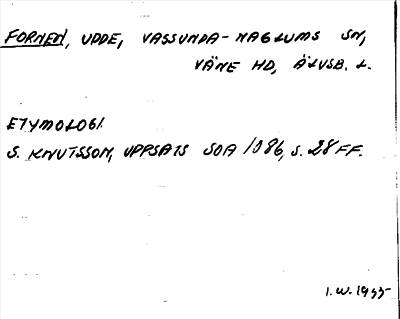 FORNEN, UDDE, VASSUNDA-NAGLUMS SN,
VÄNE HD, ÄLVSB. L.
ETYMOLOGI.
S. KNUTSSON, UPPSATS SOA 1086, S. 28 FF.
I.W. 1955